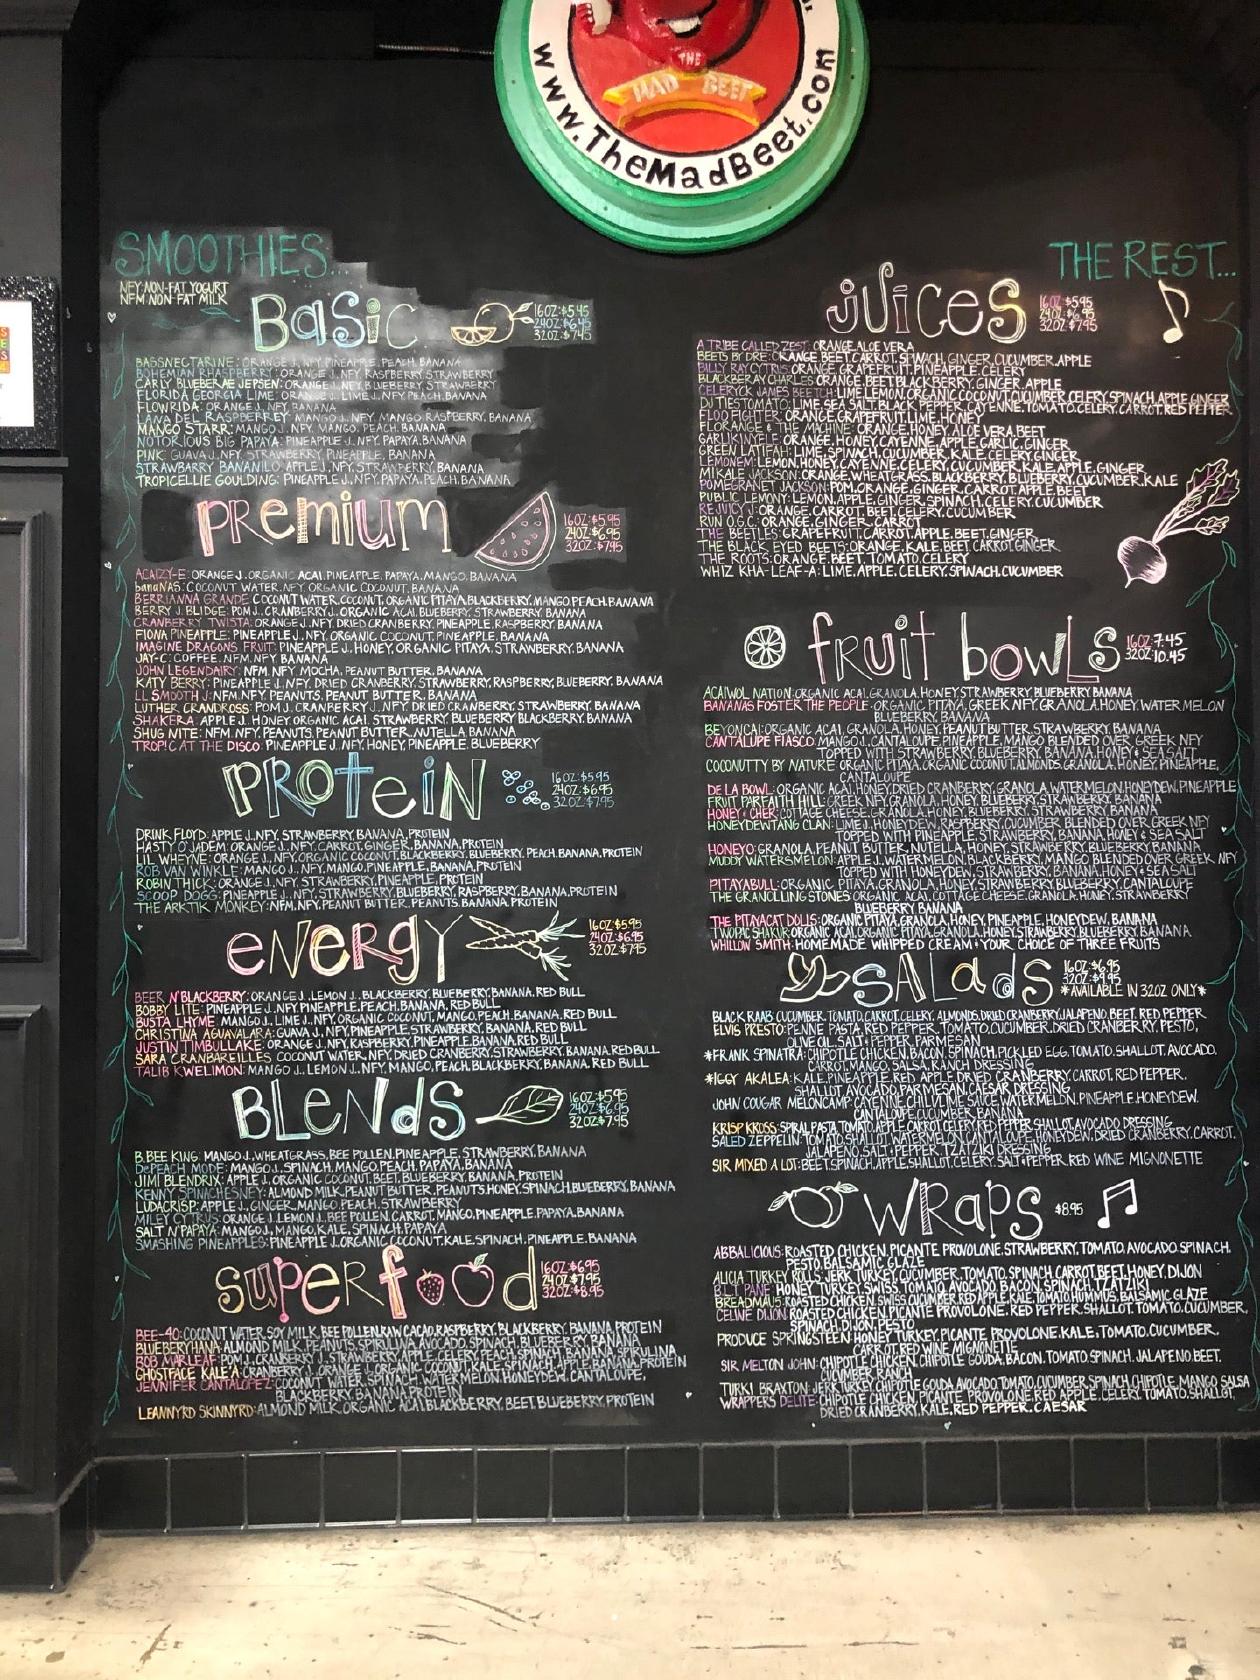 THE
MAD BEET
www.TheMadBeet.com
SMOOTHIES...
NFY:NON-FAT YOGURT
NFM:NON-FAT MILK
Basic
16OZ:$5.45
24OZ:$6.45
32OZ:$7.45
BASSNECTARINE: ORANGE J., NFY, PINEAPPLE, PEACH, BANANA
BOHEMIAN RHASPBERRY: ORANGE J., NFY, RASPBERRY, STRAWBERRY
CARLY BLUEBERAE JEPSEN: ORANGE J., NFY, BLUEBERRY, STRAWBERRY
FLORIDA GEORGIA LIME: ORANGE J., LIME J., NFY, PEACH, BANANA
FLOWRIDA: ORANGE J., NFY, BANANA
LANA DEL RASPBERRY: MANGO J., NFY, MANGO, RASPBERRY, BANANA
MANGO STARR: MANGO J., NFY, MANGO, PEACH, BANANA
NOTORIOUS BIG PAPAYA: PINEAPPLE J., NFY, PAPAYA, BANANA
PINK: GUAVA J., NFY, STRAWBERRY, PINEAPPLE, BANANA
STRAWBARRY BANANILO: APPLE J., NFY, STRAWBERRY, BANANA
TROPICELLIE GOULDING: PINEAPPLE J., NFY, PAPAYA, PEACH, BANANA
PRemium
16OZ:$5.95
24OZ:$6.95
32OZ:$7.95
ACAIZY-E: ORANGE J., ORGANIC ACAI, PINEAPPLE, PAPAYA, MANGO, BANANA
bananaNAS: COCONUT WATER, NFY, ORGANIC COCONUT, BANANA
BERRIANNA GRANDE: COCONUT WATER, COCONUT, ORGANIC PITAYA, BLACKBERRY, MANGO, PEACH, BANANA
BERRY J. BLIDGE: POM J., CRANBERRY J., ORGANIC ACAI, BLUEBERRY, STRAWBERRY, BANANA
CRANBERRY TWISTA: ORANGE J., NFY, DRIED CRANBERRY, PINEAPPLE, RASPBERRY, BANANA
FIONA PINEAPPLE: PINEAPPLE J., NFY, ORGANIC COCONUT, PINEAPPLE, BANANA
IMAGINE DRAGONS FRUIT: PINEAPPLE J., HONEY, ORGANIC PITAYA, STRAWBERRY, BANANA
JAY-C: COFFEE, NFM, NFY, BANANA
JOHN LEGENDAIRY: NFM, NFY, MOCHA, PEANUT BUTTER, BANANA
KATY BERRY: PINEAPPLE J., NFY, DRIED CRANBERRY, STRAWBERRY, RASPBERRY, BLUEBERRY, BANANA
LL SMOOTH J: NFM, NFY, PEANUTS, PEANUT BUTTER, BANANA
LUTHER CRANDROSS: POM J., CRANBERRY J., NFY, DRIED CRANBERRY, STRAWBERRY, BANANA
SHAKERA: APPLE J., HONEY, ORGANIC ACAI, STRAWBERRY, BLUEBERRY, BLACKBERRY, BANANA
SHUG NITE: NFM, NFY, PEANUTS, PEANUT BUTTER, NUTELLA, BANANA
TROPIC AT THE DISCO: PINEAPPLE J., NFY, HONEY, PINEAPPLE, BLUEBERRY
PROteiN
16OZ:$5.95
24OZ:$6.95
32OZ:$7.95
DRINK FLOYD: APPLE J., NFY, STRAWBERRY, BANANA, PROTEIN
HASTY O'JADEM: ORANGE J., NFY, CARROT, GINGER, BANANA, PROTEIN
LIL WHEYNE: ORANGE J., NFY, ORGANIC COCONUT, BLACKBERRY, BLUEBERRY, PEACH, BANANA, PROTEIN
ROB VAN WINKLE: MANGO J., NFY, MANGO, PINEAPPLE, BANANA, PROTEIN
ROBIN THICK: ORANGE J., NFY, STRAWBERRY, PINEAPPLE, PROTEIN
SCOOP DOGG: PINEAPPLE J., NFY, STRAWBERRY, BLUEBERRY, RASPBERRY, BANANA, PROTEIN
THE ARKTIK MONKEY: NFM, NFY, PEANUT BUTTER, PEANUTS, BANANA, PROTEIN
eNeRgY
16OZ:$5.95
24OZ:$6.95
32OZ:$7.95
BEER N' BLACKBERRY: ORANGE J., LEMON J., BLACKBERRY, BLUEBERRY, BANANA, RED BULL
BOBBY LITE: PINEAPPLE J., NFY, PINEAPPLE, PEACH, BANANA, RED BULL
BUSTA LHYME: MANGO J., LIME J., NFY, ORGANIC COCONUT, MANGO, PEACH, BANANA, RED BULL
CHRISTINA AGUAVALARA: GUAVA J., NFY, PINEAPPLE, STRAWBERRY, BANANA, RED BULL
JUSTIN TIMBULLAKE: ORANGE J., NFY, RASPBERRY, PINEAPPLE, BANANA, RED BULL
SARA CRANBAREILLES: COCONUT WATER, NFY, DRIED CRANBERRY, STRAWBERRY, BANANA, RED BULL
TALIB KWELIMON: MANGO J., LEMON J., NFY, MANGO, PEACH, BLACKBERRY, BANANA, RED BULL
BLeNdS
16OZ:$5.95
24OZ:$6.95
32OZ:$7.95
B.BEE KING: MANGO J., WHEATGRASS, BEE POLLEN, PINEAPPLE, STRAWBERRY, BANANA
DePEACH MODE: MANGO J., SPINACH, MANGO, PEACH, PAPAYA, BANANA
JIMI BLENDRIX: APPLE J., ORGANIC COCONUT, BEET, BLUEBERRY, BANANA, PROTEIN
KENNY SPINACHESNEY: ALMOND MILK, PEANUT BUTTER, PEANUTS, HONEY, SPINACH, BLUEBERRY, BANANA
LUDACRISP: APPLE J., GINGER, MANGO, PEACH, STRAWBERRY
MILEY CYTRUS: ORANGE J., LEMON J., BEE POLLEN, CARROT, MANGO, PINEAPPLE, PAPAYA, BANANA
SALT N' PAPAYA: MANGO J., MANGO, KALE, SPINACH, PAPAYA
SMASHING PINEAPPLES: PINEAPPLE J., ORGANIC COCONUT, KALE, SPINACH, PINEAPPLE, BANANA
SuperFood
16OZ:$6.95
24OZ:$7.95
32OZ:$8.95
BEE-40: COCONUT WATER, SOY MILK, BEE POLLEN, RAW CACAO, RASPBERRY, BLACKBERRY, BANANA, PROTEIN
BLUEBERYHANA: ALMOND MILK, PEANUTS, SPIRULINA, AVOCADO, SPINACH, BLUEBERRY, BANANA
BOB MARLEAF: POM J., CRANBERRY J., STRAWBERRY, APPLE, CELERY, PEACH, SPINACH, BANANA, SPIRULINA
GHOSTFACE KALE'A: ORANGE J., ORGANIC COCONUT, KALE, SPINACH, APPLE, BANANA, PROTEIN
JENNIFER CANTALOPEZ: COCONUT WATER, SPINACH, WATERMELON, HONEYDEW, CANTALOUPE,
BLACKBERRY, BANANA, PROTEIN
LEANNYRD SKINNYRD: ALMOND MILK, ORGANIC ACAI, BLACKBERRY, BEET, BLUEBERRY, PROTEIN
THE REST...
juices
16OZ:$5.95
24OZ:$6.95
32OZ:$7.95
A TRIBE CALLED ZEST: ORANGE, ALOE VERA
BEETS BY DRE: ORANGE, BEET, CARROT, SPINACH, GINGER, CUCUMBER, APPLE
BILLY RAY CYTRUS: ORANGE, GRAPEFRUIT, PINEAPPLE, CELERY
BLACKBERAY CHARLES: ORANGE, BEET, BLACKBERRY, GINGER, APPLE
CELERYCK JAMES BEETCH: LIME, LEMON, ORGANIC COCONUT, CUCUMBER, CELERY, SPINACH, APPLE, GINGER
DJ TIESTOMATO: LIME, SEA SALT, BLACK PEPPER, CAYENNE, TOMATO, CELERY, CARROT, RED PEPPER
FLOO FIGHTER: ORANGE, GRAPEFRUIT, LIME, HONEY
FLORANGE & THE MACHINE: ORANGE, HONEY, ALOE VERA, BEET
GARLIKNYFE: ORANGE, HONEY, CAYENNE, APPLE, GARLIC, GINGER
GREEN LATIFAH: LIME, SPINACH, CUCUMBER, KALE, CELERY, GINGER
LEMONEM: LEMON, HONEY, CAYENNE, CELERY, CUCUMBER, KALE, APPLE, GINGER
MIKALE JACKSON: ORANGE, WHEATGRASS, BLACKBERRY, BLUEBERRY, CUCUMBER, KALE
POMEGRANET JACKSON: POM, ORANGE, GINGER, CARROT, APPLE, BEET
PUBLIC LEMONY: LEMON, APPLE, GINGER, SPINACH, CELERY, CUCUMBER
REJUICY J: ORANGE, CARROT, BEET, CELERY, CUCUMBER
RUN O.G.C.: ORANGE, GINGER, CARROT
THE BEETLES: GRAPEFRUIT, CARROT, APPLE, BEET, GINGER
THE BLACK EYED BEETS: ORANGE, KALE, BEET, CARROT, GINGER
THE ROOTS: ORANGE, BEET, TOMATO, CELERY
WHIZ KHA-LEAF-A: LIME, APPLE, CELERY, SPINACH, CUCUMBER
fRuit bowLS
16OZ:7.45
32OZ:10.45
ACAIWOL NATION: ORGANIC ACAI, GRANOLA, HONEY, STRAWBERRY, BLUEBERRY, BANANA
BANANAS FOSTER THE PEOPLE: ORGANIC PITAYA, GREEK NFY, GRANOLA, HONEY, WATERMELON
BLUEBERRY, BANANA
BEYONCAI: ORGANIC ACAI, GRANOLA, HONEY, PEANUT BUTTER, STRAWBERRY, BANANA
CANTALUPE FIASCO: MANGO J., CANTALOUPE, PINEAPPLE, MANGO BLENDED OVER GREEK NFY
TOPPED WITH STRAWBERRY, BLUEBERRY, BANANA, HONEY & SEA SALT
COCONUTTY BY NATURE: ORGANIC PITAYA, ORGANIC COCONUT, ALMONDS, GRANOLA, HONEY, PINEAPPLE,
CANTALOUPE
DE LA BOWL: ORGANIC ACAI, HONEY, DRIED CRANBERRY, GRANOLA, WATERMELON, HONEYDEW, PINEAPPLE
FRUIT PARFAITH HILL: GREEK NFY, GRANOLA, HONEY, BLUEBERRY, STRAWBERRY, BANANA
HONEY & CHER: COTTAGE CHEESE, GRANOLA, HONEY, BLUEBERRY, STRAWBERRY, BANANA
HONEYDEWTANG CLAN: LIME J., HONEYDEW, RASPBERRY, CUCUMBER BLENDED OVER GREEK NFY
TOPPED WITH PINEAPPLE, STRAWBERRY, BANANA, HONEY & SEA SALT
HONEYO: GRANOLA, PEANUT BUTTER, NUTELLA, HONEY, STRAWBERRY, BLUEBERRY, BANANA
MUDDY WATERSMELON: APPLE J., WATERMELON, BLACKBERRY, MANGO BLENDED OVER GREEK NFY
TOPPED WITH HONEYDEW, STRAWBERRY, BANANA, HONEY & SEA SALT
PITAYABULL: ORGANIC PITAYA, GRANOLA, HONEY, STRAWBERRY, BLUEBERRY, CANTALOUPE
THE GRANOLLING STONES: ORGANIC ACAI, COTTAGE CHEESE, GRANOLA, HONEY, STRAWBERRY
BLUEBERRY, BANANA
THE PITAYACAT DOLLS: ORGANIC PITAYA, GRANOLA, HONEY, PINEAPPLE, HONEYDEW, BANANA
TWOPAC SHAKUR: ORGANIC ACAI, ORGANIC PITAYA, GRANOLA, HONEY, STRAWBERRY, BLUEBERRY, BANANA
WHILLOW SMITH: HOMEMADE WHIPPED CREAM + YOUR CHOICE OF THREE FRUITS
SALadS
16OZ:$6.95
32OZ:$9.95
*AVAILABLE IN 32OZ ONLY*
BLACK RAAB: CUCUMBER, TOMATO, CARROT, CELERY, ALMONDS, DRIED CRANBERRY, JALAPENO, BEET, RED PEPPER
ELVIS PRESTO: PENNE PASTA, RED PEPPER, TOMATO, CUCUMBER, DRIED CRANBERRY, PESTO,
OLIVE OIL, SALT + PEPPER, PARMESAN
*FRANK SPINATRA: CHIPOTLE CHICKEN, BACON, SPINACH, PICKLED EGG, TOMATO, SHALLOT, AVOCADO,
CARROT, MANGO, SALSA, RANCH DRESSING
*IGGY AKALEA: KALE, PINEAPPLE, RED APPLE, DRIED CRANBERRY, CARROT, RED PEPPER,
SHALLOT, AVOCADO, PARMESAN, CAESAR DRESSING
JOHN COUGAR MELONCAMP: CAYENNE, CHILI, LIME JUICE, WATERMELON, PINEAPPLE, HONEYDEW,
CANTALOUPE, CUCUMBER, BANANA
KRISP KROSS: SPIRAL PASTA, TOMATO, APPLE, CARROT, CELERY, RED PEPPER, SHALLOT, AVOCADO, DRESSING
SALED ZEPPELIN: TOMATO, SHALLOT, WATERMELON, CANTALOUPE, HONEYDEW, DRIED CRANBERRY, CARROT,
JALAPENO, SALT + PEPPER, TZATZIKI DRESSING
SIR MIXED A LOT: BEET, SPINACH, APPLE, SHALLOT, CELERY, SALT + PEPPER, RED WINE MIGNONETTE
WRapS
$8.95
ABBALICIOUS: ROASTED CHICKEN, PICANTE PROVOLONE, STRAWBERRY, TOMATO, AVOCADO, SPINACH,
PESTO, BALSAMIC GLAZE
ALICIA TURKEY ROLLS: JERK TURKEY, CUCUMBER, TOMATO, SPINACH, CARROT, BEET, HONEY, DIJON
B.L.T. PANE: HONEY TURKEY, SWISS, TOMATO, AVOCADO, BACON, SPINACH, TZATZIKI
BREADMAUS: ROASTED CHICKEN, SWISS, CUCUMBER, RED APPLE, KALE, TOMATO, HUMMUS, BALSAMIC GLAZE
CELWE DIJON: ROASTED CHICKEN, PICANTE PROVOLONE, RED PEPPER, SHALLOT, TOMATO, CUCUMBER,
SPINACH, DIJON, PESTO
PRODUCE SPRINGSTEEN: HONEY TURKEY, PICANTE PROVOLONE, KALE, TOMATO, CUCUMBER,
CARROT, RED WINE MIGNONETTE
SIR MELTON JOHN: CHIPOTLE CHICKEN, CHIPOTLE GOUDA, BACON, TOMATO, SPINACH, JALAPENO, BEET,
CUCUMBER, RANCH
TURKI BRAXTON: JERK TURKEY, CHIPOTLE GOUDA, AVOCADO, TOMATO, CUCUMBER, SPINACH, CHIPOTLE, MANGO SALSA
WRAPPERS DELITE: CHIPOTLE CHICKEN, PICANTE PROVOLONE, RED APPLE, CELERY, TOMATO, SHALLOT,
DRIED CRANBERRY, KALE, RED PEPPER, CAESAR